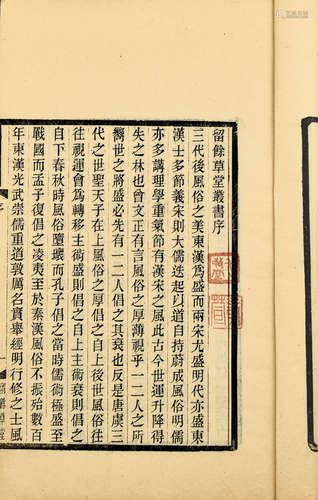 留餘草堂叢書序
三代後風俗之美東漢爲盛而兩宋尤盛明代亦盛東
漢士多節義宋則大儒迭起以道自持蔚成風俗明儒
亦多講理學重氣節有漢宋之風此古今世運升降得
失之林也曾文正有言風俗之厚薄視乎一二人之所
嚮世之將盛必先有一二人倡之其衰也反是唐虞三
代之世聖天子在上風俗之厚倡之自上後世風俗
往視運會爲轉移主術盛則倡之自上主術衰則倡之
自下春秋時風俗墮壞而孔子倡之當時儒術極盛至
戰國而孟子復倡之凌夷至於秦漢風俗不振殆數百
年東漢光武崇儒重道敦厲名實舉經明行修之士風
序
一